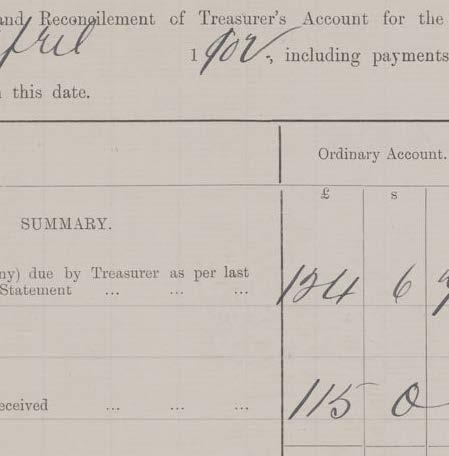 and Reconcilement of Treasurer's Account for the
April 1902, including payments
this date.
Ordinary Account.
£ s
SUMMARY.
ny) due by Treasurer as per last
Statement ... ... ... 134 6
eceived ... ... ... 115 0